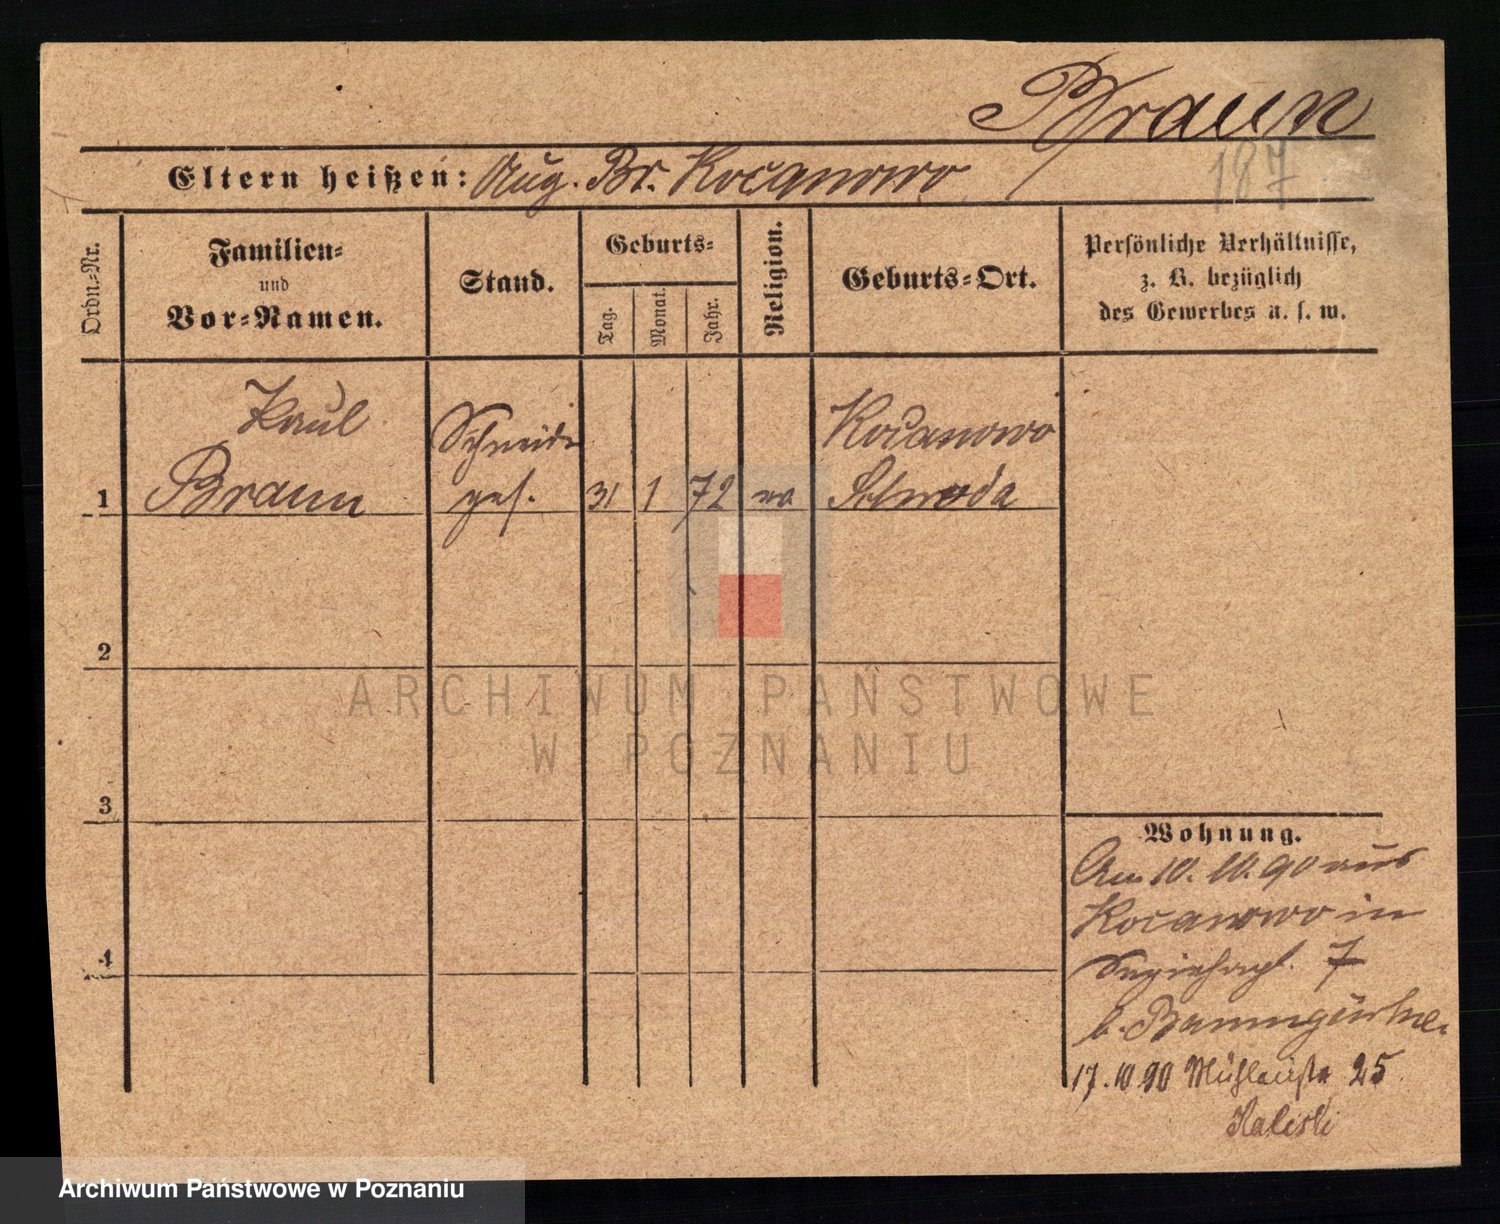 Braun
187
Eltern heißen: Aug. Br. Kocanowo
Ordn.=Nr.
Familien=
und
Vor=Namen.
Stand.
Geburts=
Tag.
Monat.
Jahr.
Religion.
Geburts=Ort.
Persönliche Verhältnisse,
z. B. bezüglich
des Gewerbes u. s. w.
Paul
Braun
Schneider
ges.
1
31
1
72
ev
Kocanowo
Schroda
2
3
4
Wohnung.
Am 10. 10. 90 aus
Kocanowo in
7
b. Baumgärtner
17.10 90 Mühlenstr 25
Kaliski
ARCHIWUM PAŃSTWOWE
W POZNANIU
Archiwum Państwowe w Poznaniu